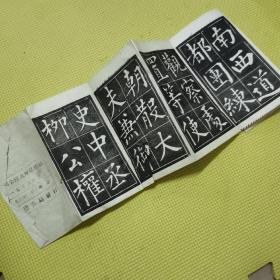 南西道
都團練
觀察處
置等使
朝散大
夫兼御
史中丞
柳公權